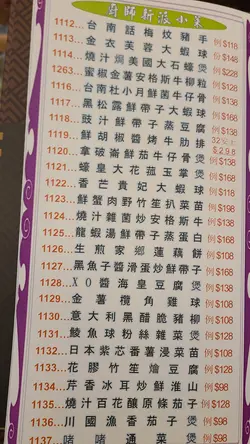 廚師新派小菜
1112...台南話梅炆豬手 例$118
1113...金衣芙蓉大蝦球 份$148
1114...燒汁焗美國大石蠔煲 例$128
1263...蜜椒金薯安格斯牛柳粒 例$128
1116...台南杜小月鮮菌牛仔骨 例$138
1117...黑松露鮮帶子大蝦球 例$168
1118...豉汁鮮帶子蒸豆腐 例$138
1119...鮮胡椒醬烤牛肋排
1120...拿破崙鮮茄牛仔骨 例$138
1121...蠔皇大花菰玉掌煲 例$168
1122...香芒貴妃大蝦球 例$168
1123...鮮蟹肉野竹笙扒菜苗 例$198
1124...燒汁雜菌炒安格斯牛 例$138
1125...龍蝦湯鮮帶子蒸蛋白 例$168
1126...生煎家鄉蓮藕餅 例$108
1127...黑魚子醬滑蛋炒鮮帶子 例$168
1128...XO醬海皇豆腐煲 例$128
1129...金薯欖角雞球 例$108
1130...意大利黑醋脆豬柳 例$108
1131...鯪魚球粉絲雜菜煲 例$98
1132...日本紫芯番薯浸菜苗 例$108
1133...花膠竹笙燴豆腐 例$128
1134...芹香冰耳炒鮮淮山 例$98
1135...燒汁百花釀原條茄子 例$128
1136...川國漁香茄子煲 例$98
1137...啫啫通菜煲 例$98